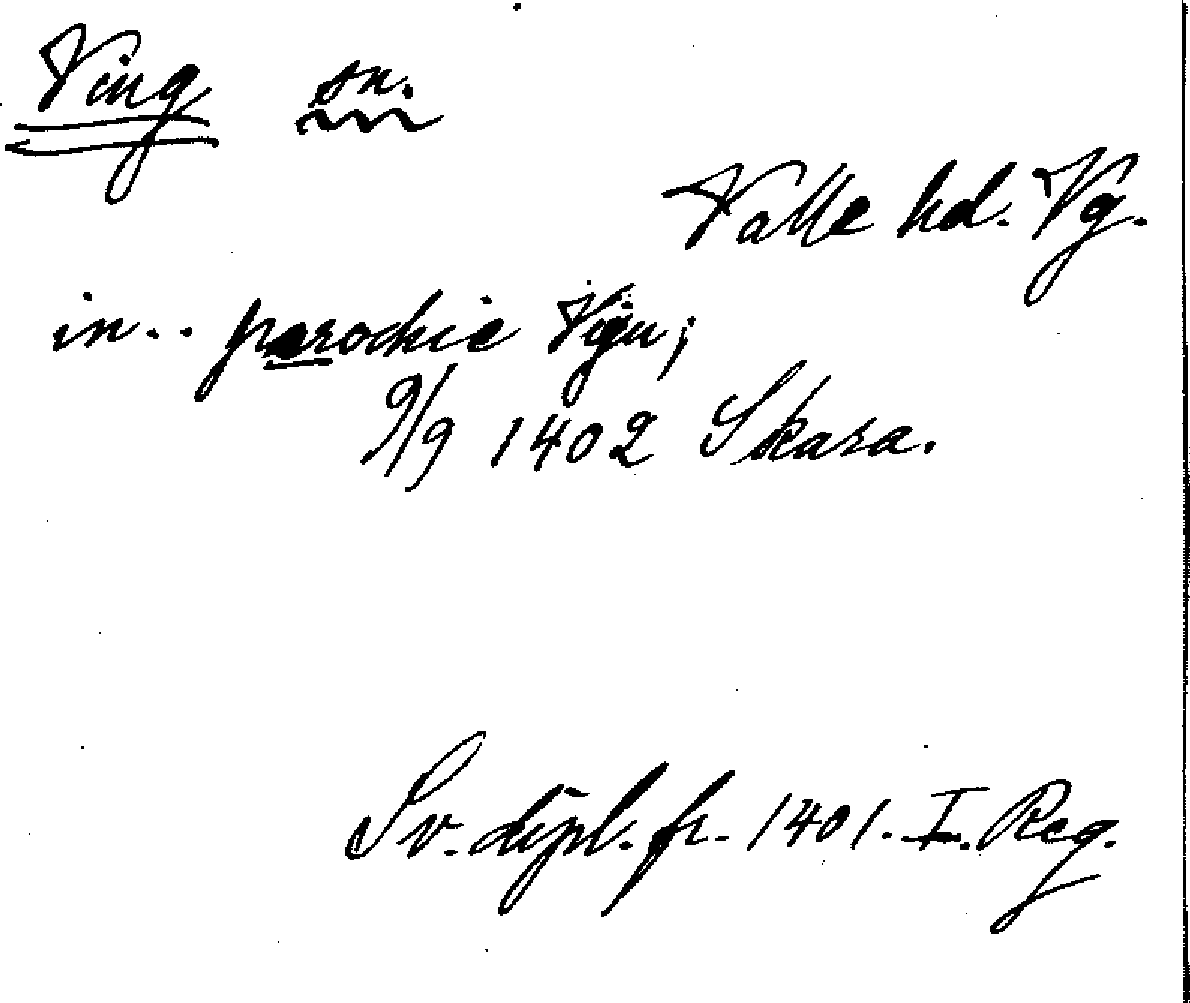 Ving sn.
Valle hd. Vg.
in.. parochie
9/9 1402 Skara.
Sv. dipl. fr. 1401. I. Reg.